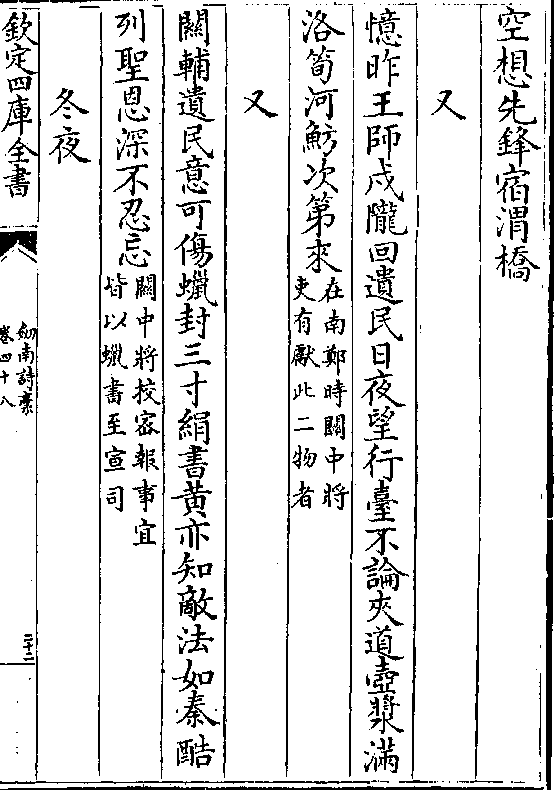 空想先鋒宿渭橋
又
憶昨王師戍隴回遺民日夜望行臺不論夾道壺漿滿
洛筍河魴次第來在南鄭時關中將吏有獻此二物者
又
關輔遺民意可傷蠟封三寸絹書黄亦知敵法如秦酷
列聖恩深不忍忘關中將校密報事宜皆以蠟書至宣司
冬夜
欽定四庫全書
劒南詩稾
卷四十八
二十二